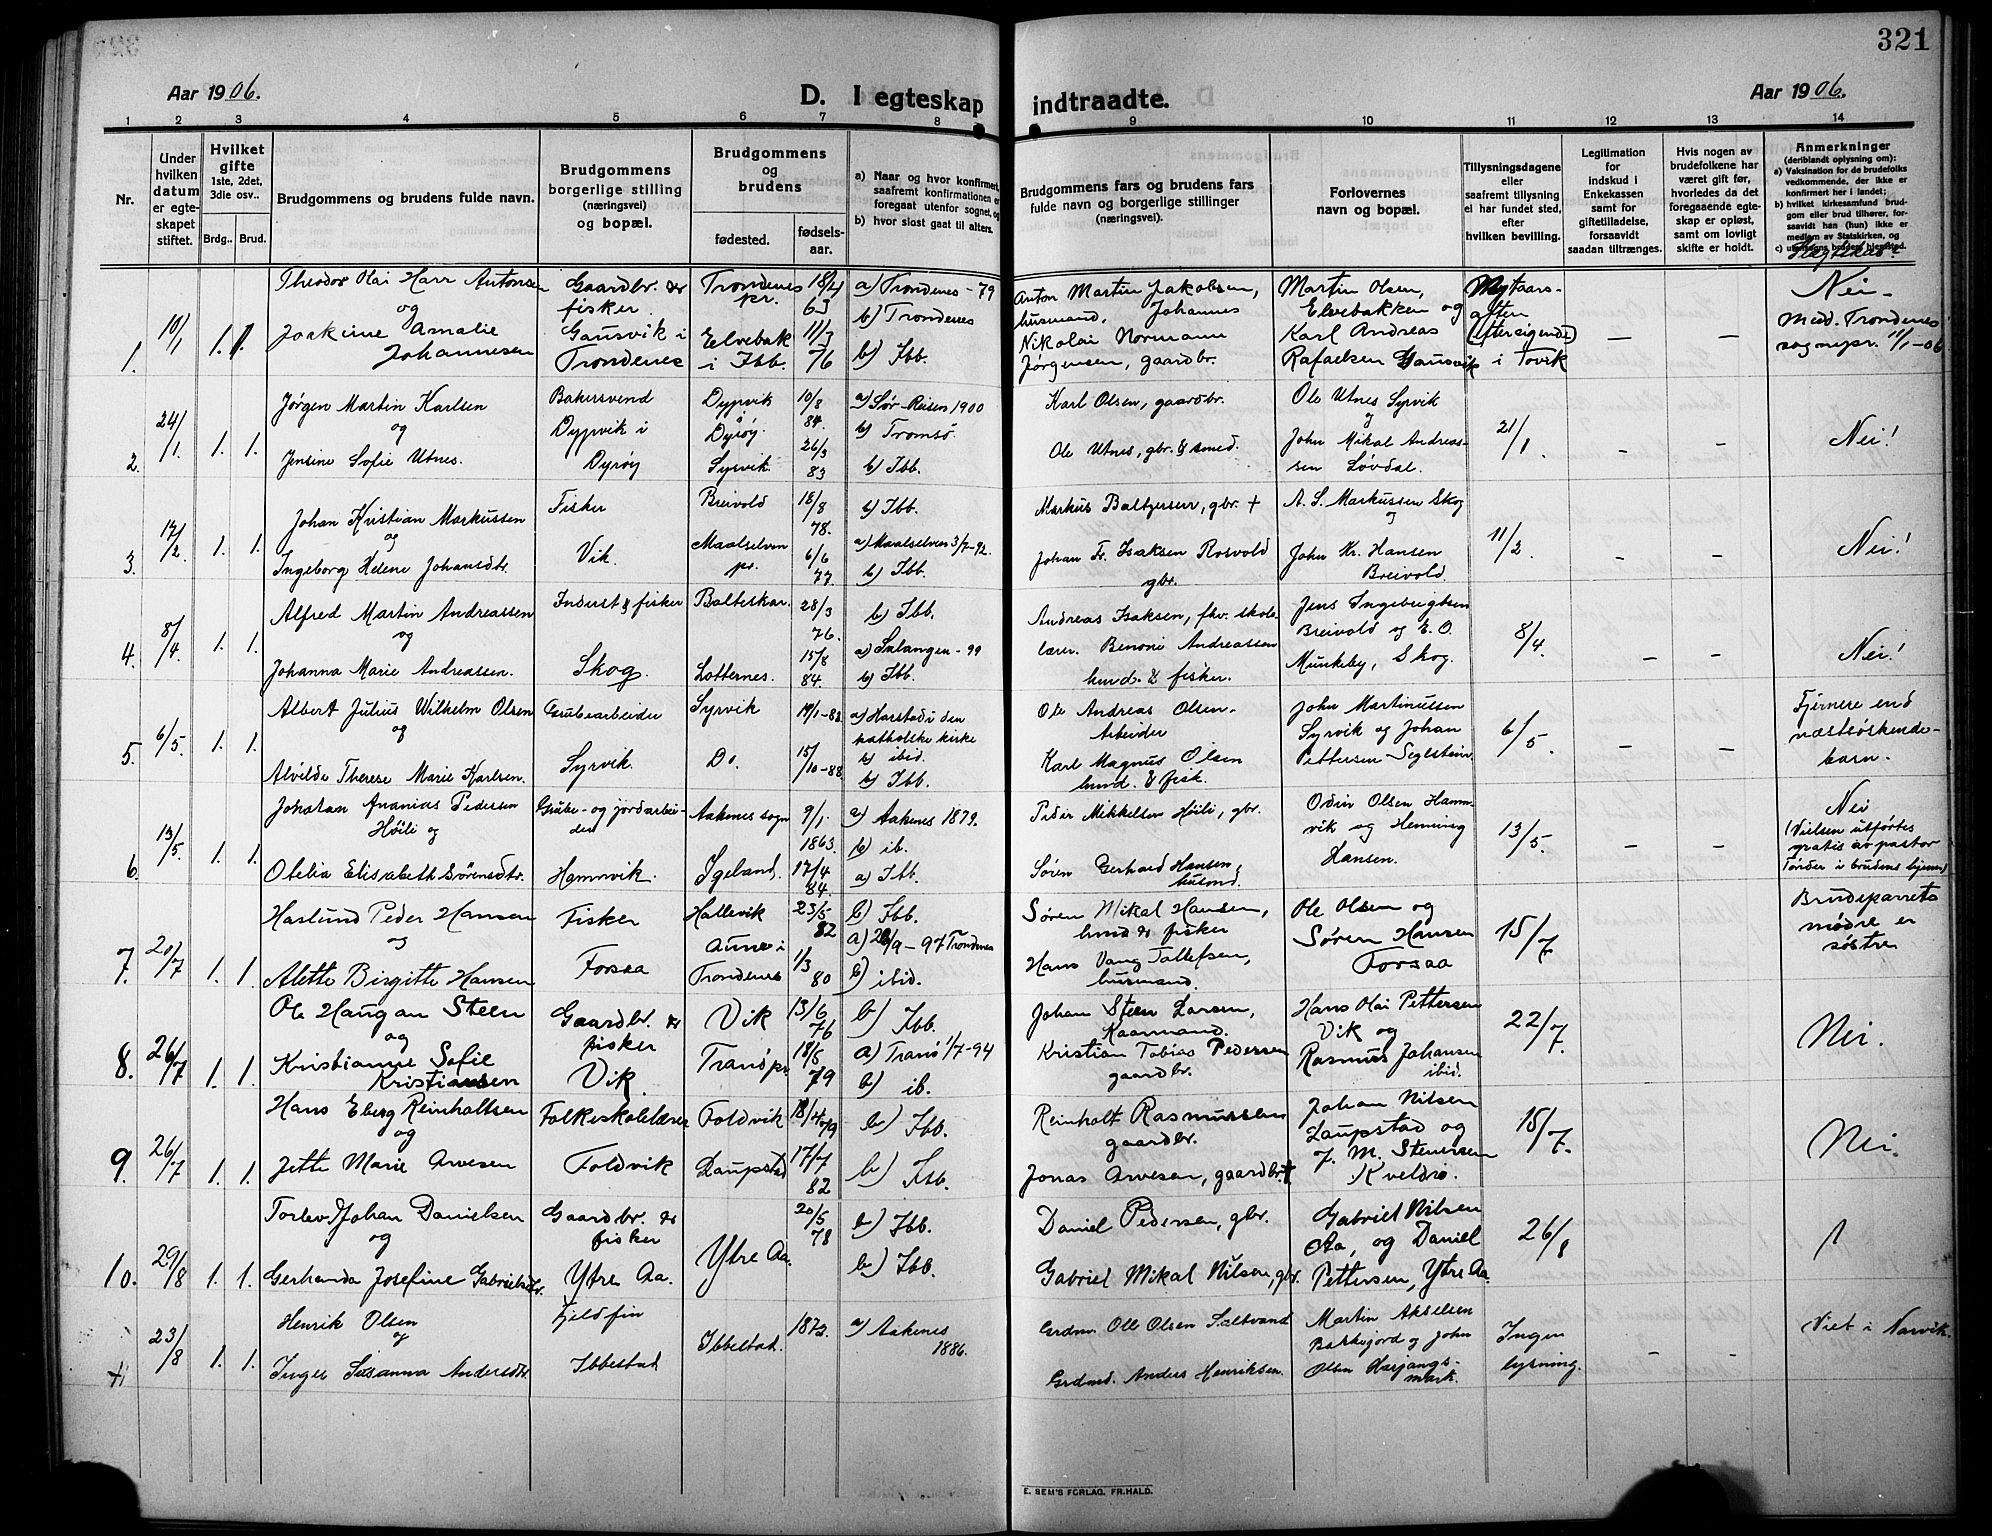 321
Aar 1906.
D. I egteskap indtraadte.
Aar 1906.
1 2 3 4 5 6 7 8 9 10 11 12 13 14
Nr.
Under hvilken datum er egteskapet stiftet.
Hvilket gifte 1ste, 2det, 3die osv..
Brdg.. Brud.
Brudgommens og brudens fulde navn.
Brudgommens borgerlige stilling (næringsvei) og bopæl.
Brudgommens og brudens
fødested. fødselsaar.
a) Naar og hvor konfirmert, saafremt konfirmationen er foregaat utenfor sognet, og
b) hvor sidst gaat til alters.
Brudgommens fars og brudens fars fulde navn og borgerlige stillinger (næringsvei).
Forlovernes navn og bopæl.
Tillysningsdagene eller saafremt tillysning ei har fundet sted, efter hvilken bevilling.
Legitimation for indskud i Enkekassen samt for giftetilladelse, forsaavidt saadan tiltrænges.
Hvis nogen av brudefolkene har været gift før, hvorledes da det foregaaende egteskap er opløst, samt om lovligt skifte er holdt.
Anmerkninger
(deriblandt oplysning om):
a) Vaksination for de brudefolks vedkommende, der ikke er konfirmert her i landet;
b) hvilket kirkesamfund brudgom eller brud tilhører, forsaavidt han (hun) ikke er medlem av Statskirken, og
Slegtskab?
1. 10/1 1. 1.
Theodor Olai Harr Antonsen
og
Joakime Amalie
Johannesen
Gaardbr. &
fisker
Gausvik i
Trondenes
Trondenes pr. 18/4 63
Elvebak i Ibb. 11/3 76
a) Trondenes - 79
b) Trondenes
b) Ibb.
Anton Martin Jakobsen,
husmand, Johannes
Nikolai Normann
Jørgensen, gaardbr.
Martin Olsen,
Elvebakken og
Karl Andreas
Rafaelsen Gausvik
Nytaarsaften
i Tovik
— —
Nei.
Medd. Trondenes
sognepr. 11/1-06
2. 24/1 1. 1.
Jørgen Martin Karlsen
og
Jensine Sofie Utnes.
Bakersvend
Dypvik i
Dyrøy
Dypvik Dyrøy. 10/8 84.
Syrvik 26/3 83
a) Sør-Reisen 1900
b) Tromsø.
b) Ibb.
Karl Olsen, gaardbr.
Ole Utnes, gbr. & smed.
Ole Utnes Syrvik
og
John Mikal Andreassen
Løvdal.
21/1.
- -
Nei!
3. 17/2 1. 1.
Johan Kristian Markussen
og
Ingeborg Helene Johansdtr.
Fisker
Vik.
Breivold 18/8 78.
Maalselven pr. 6/6 77.
b) Ibb.
a) Maalselven 3/7-92.
b) Ibb.
Markus Baltzersen, gbr. †
Johan Fr. Isaksen Rosvold
gbr.
A. S. Markussen Skog
og
John Kr. Hansen
Breivold.
11/2.
- -
Nei!
4. 8/4 1. 1.
Alfred Martin Andreassen
og
Johanna Marie Andreassen.
Inderst & fisker
Skog.
Balteskar. 28/3 76.
Lotternes. 15/8 84.
b) Ibb.
a) Salangen - 99
b) Ibb.
Andreas Isaksen, fhv. skolelærer.
Benoni Andreassen
husmd. & fisker.
Jens Ingebrigtsen
Breivold og E. O.
Munkeby, Skog.
8/4.
- -
Nei!
5. 6/5. 1. 1.
Albert Julius Wilhelm Olsen
og
Alvilde Therese Marie Karlsen.
Grubearbeider
Syrvik.
Syrvik
Do. 15/10-88.
a) Harstad i den
katholske kirke
b) ibid.
b) Ibb.
Ole Andreas Olsen.
Arbeider
Karl Magnus Olsen
husmd. & fisk.
John Martinussen
Syrvik og Johan
Pettersen Seglstein
6/5.
- -
Fjernere end
næstsøskendebarn.
6. 13/5. 1. 1.
Johatan Ananias Pedersen
Høili og
Otelia Elisabeth Sørensdtr.
Grube- og jordarbeider
Hamnvik.
Aakenes sogn 9/1 1863.
Igeland. 17/4 84
a) Aakenes 1879.
b) ib.
a) Ibb.
Peder Mikkelsen Høili, gbr.
Søren Gerhard Hansen,
husmd.
Odin Olsen Hamnvik
og Henning
Hansen.
13/5.
- -
Nei
(Vielsen utførtes
gratis av pastor
Tønder i brudens hjem)
7. 20/7 1. 1.
Haslund Peder Hansen
og
Alette Birgitte Hansen
Fisker
Forsaa
Hallevik 23/5 82
Aune i Trondenes 1/3 80
b) Ibb.
a) 26/9-97 Trondenes
b) ibid.
Søren Mikal Hansen,
husmd. & fisker
Hans Vang Tollefsen,
husmand.
Ole Olsen og
Søren Hansen
Forsaa
15/7
Brudeparrets
mødre er
søstre
8. 26/7 1. 1.
Ole Haugan Steen
og
Kristianne Sofie
Kristiansen
Gaardbr. &
fisker
Vik.
Vik 13/6 76
Tranö pr. 18/5 79
b) Ibb.
a) Tranö 1/7-94
b) ib.
Johan Steen Larsen,
Kaarmand.
Kristian Tobias Pedersen
gaardbr.
Hans Olai Pettersen
Vik og
Rasmus Johansen
ibid.
22/7.
Nei.
9. 26/7 1. 1.
Hans Eberg Reinholtsen
og
Jette Marie Arvesen
Folkeskolelærer
Foldvik
Foldvik 18/4 79
Laupstad 17/7 82
b) Ibb.
b) Ibb.
Reinholt Rasmussen
gaardbr.
Jonas Arvesen, gaardbr. †
Johan Nilsen
Laupstad og
J. M. Stenersen
Kveldrö.
15/7.
Nei.
10. 29/8 1. 1.
Torlev Johan Danielsen
og
Gerharda Josefine Gabrielsdtr.
Gaardbr. &
fisker
Ytre Aa.
Ytre Aa. 20/5 78
b) Ibb.
b) Ibb.
Daniel Pedersen, gbr.
Gabriel Mikal Nilsen, gbr.
Gabriel Nilsen
Aa, og Daniel
Pettersen, Ytre Aa.
26/8
11 23/8 1. 1.
Henrik Olsen
og
Inger Susanna Andersdtr.
Fjeldfin
Ibbestad
Ibbestad. 1872.
a) Aakenes
1886.
Grdm. Ole Olsen Saltvand
Grdmd. Anders Henriksen.
Martin Akselsen
Barkejord og John
Olsen Harjangsmark.
Ingen
lysning.
- -
Viet i Narvik.
E. SEM'S FORLAG, FR.HALD.